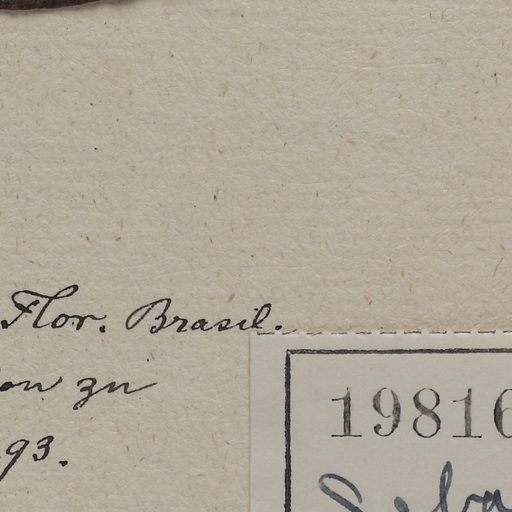 Flor. Brasil.
zu
93.
19816